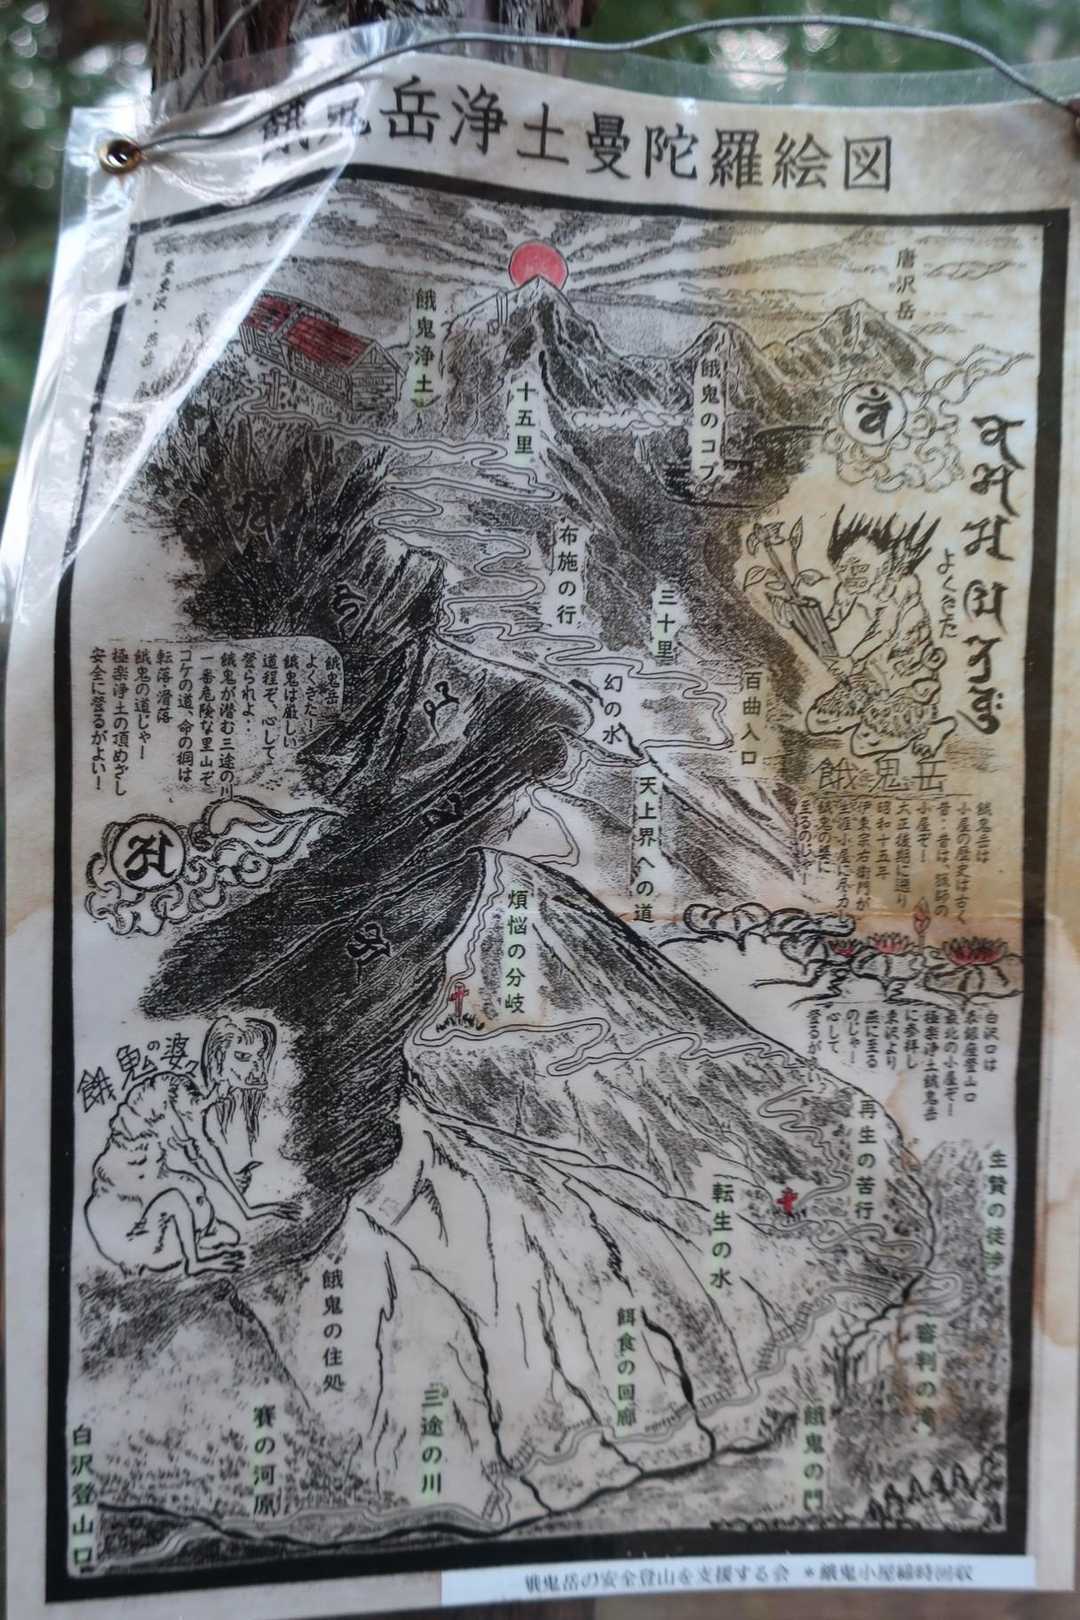 餓鬼岳浄土曼陀羅絵図
唐沢岳
餓鬼浄土
十五里
餓鬼のコブ
布施の行
三十里
よくきたな
幻の水
百曲入口
餓鬼岳
天上界への道
餓鬼岳
よくきた！
餓鬼は厳しい
道程ぞ、心して
登られよ・
餓鬼が潜む三途の川
一番危険な里山ぞ
コケの道、命の綱は
転落・滑落
餓鬼の道じゃー
極楽浄土の頂めざし
安全に登るがよい！
餓鬼岳は
小屋の歴史は古く
昔・昔は、猟師の
小屋ぞー！
大正後期に遡り
昭和十五年
伊東宗右衛門が
煩悩の分岐
白沢口は
表銀座登山口
最北の小屋ぞー！
極楽浄土餓鬼岳
に参拝し
東沢より
燕に至る
のじゃー
心して
登るが
餓鬼の婆
再生の苦行
生贄の徒渉
転生の水
審判の滝
餓鬼の住処
餌食の回廊
三途の川
餓鬼の門
賽の河原
白沢登山口
餓鬼岳の安全登山を支援する会 ＊餓鬼小屋締時回収